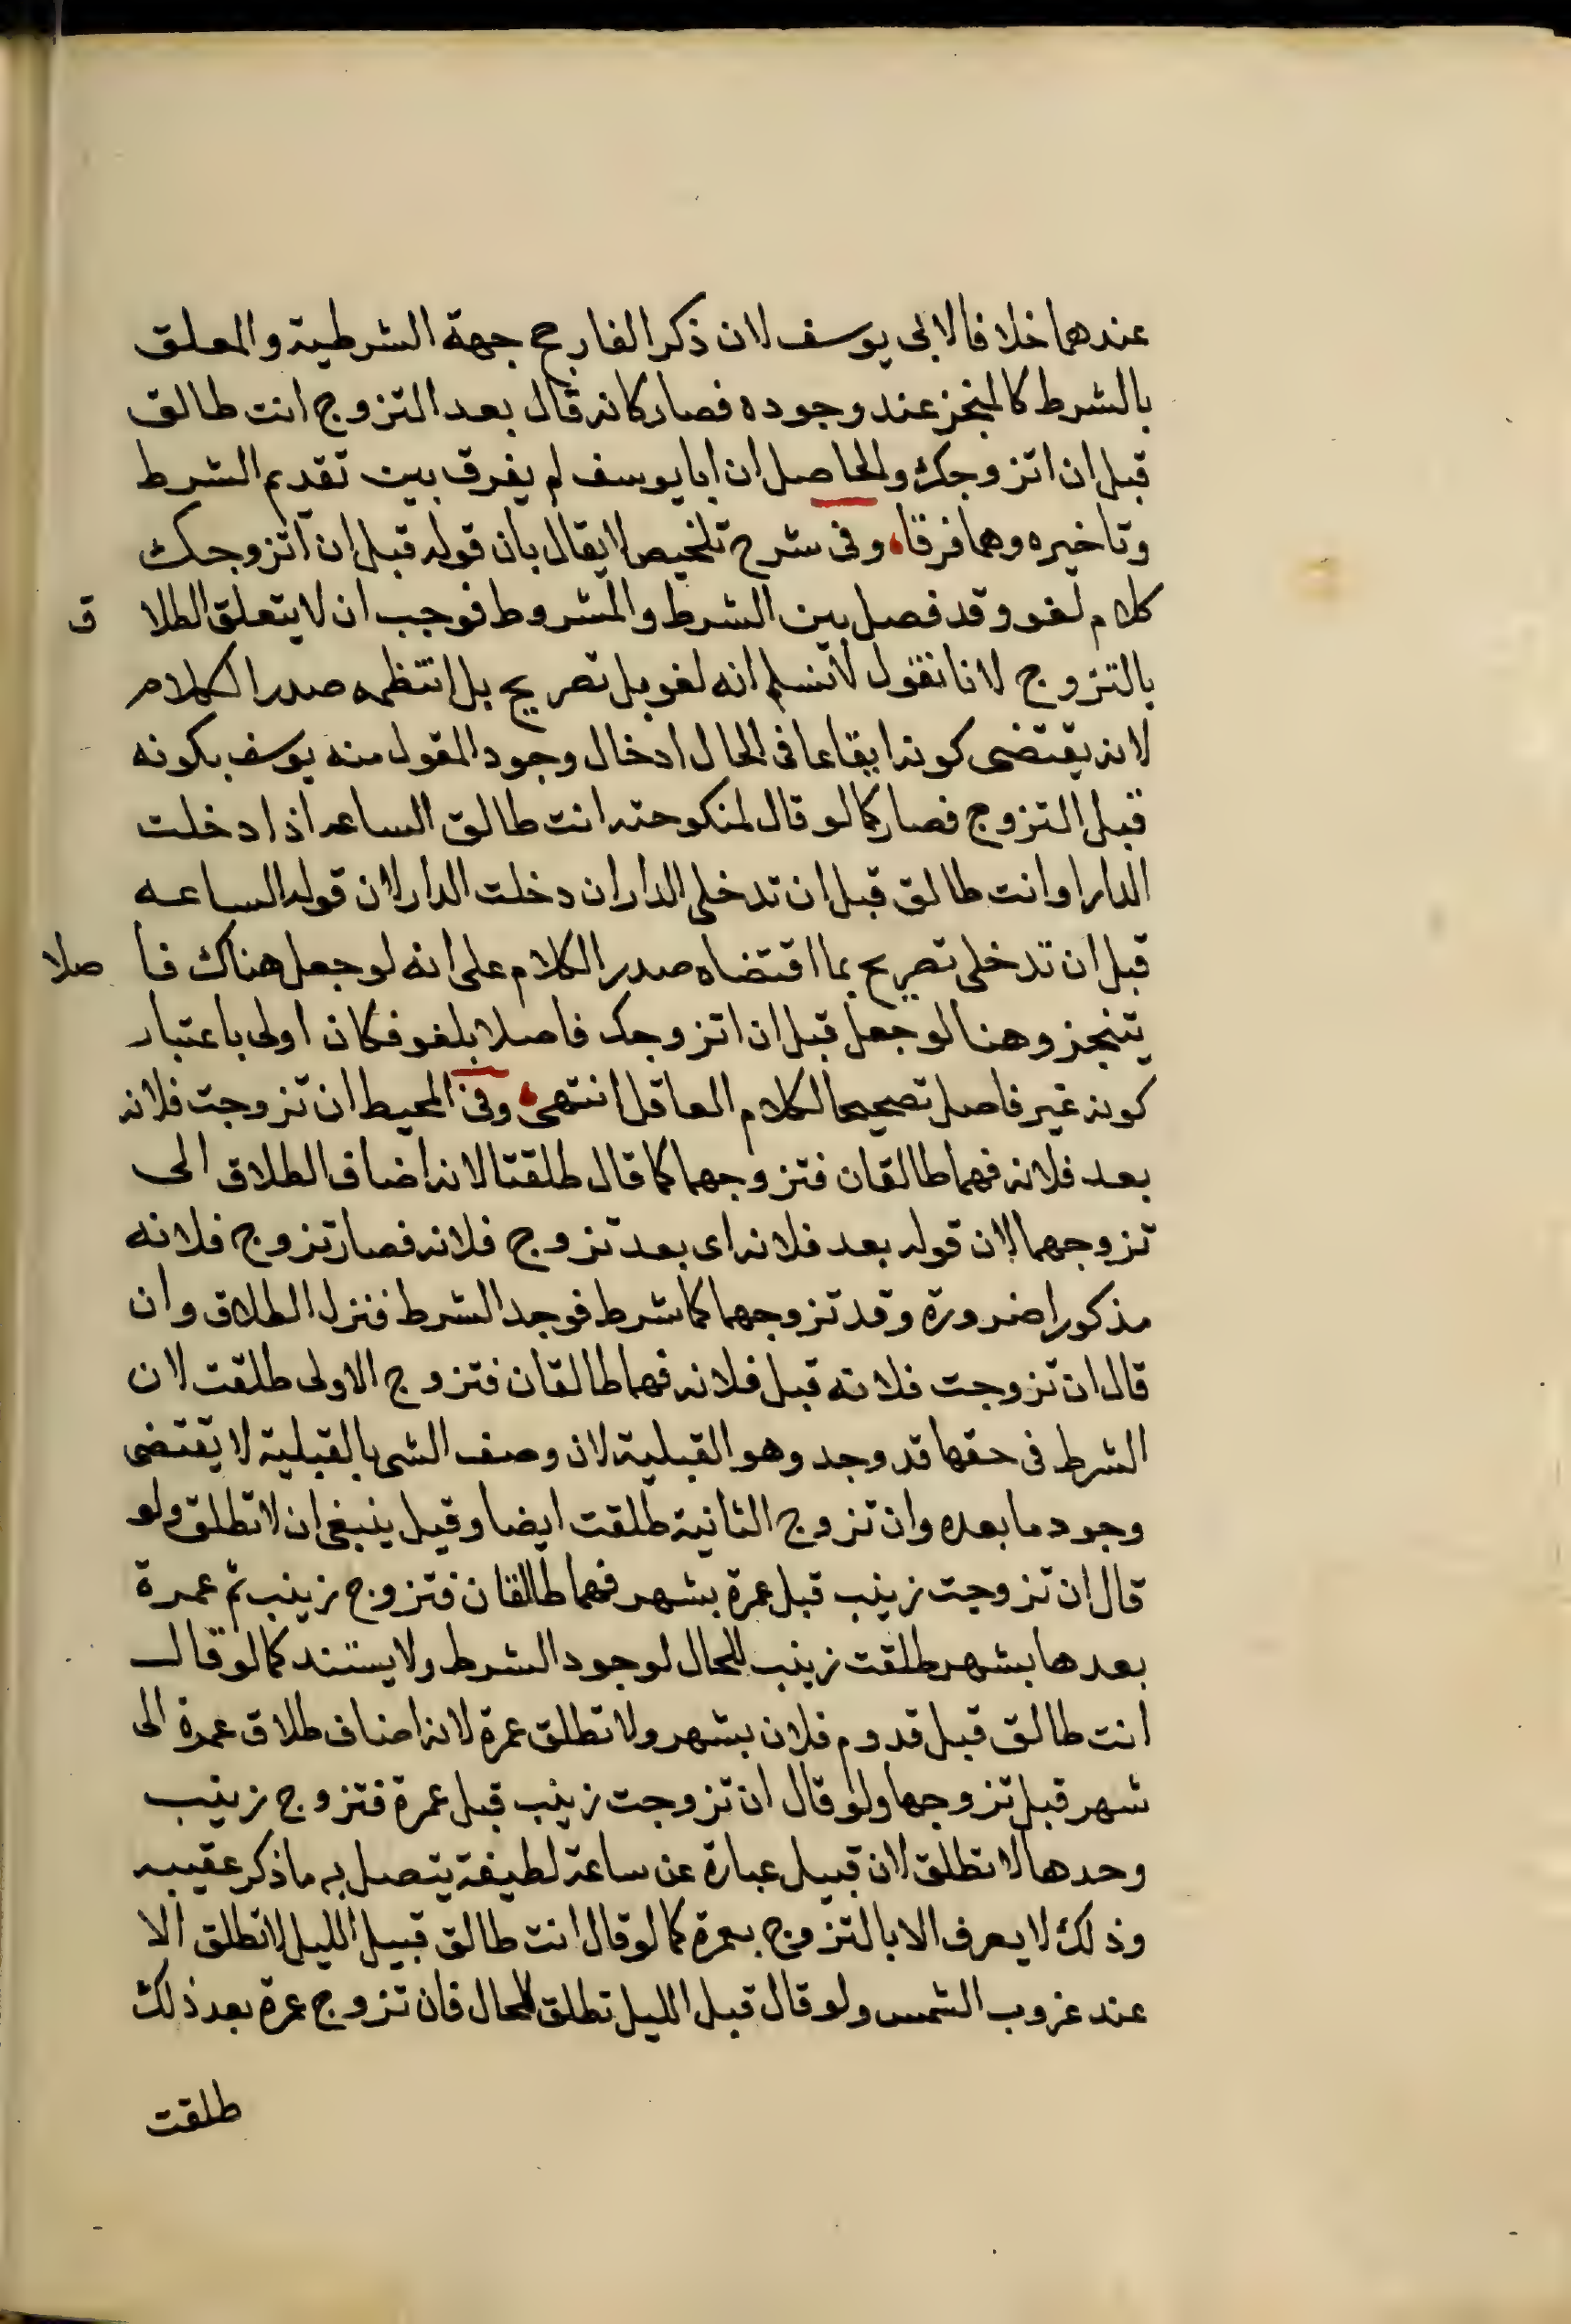 عندهما خلافا لابى يوسف لان ذكر الفا رجح جهة الشرطية والمعلق
بالشرط كالمنجز عند وجوده فصار كانه قال بعد التزوج انت طالق
قبل ان اتزوجك والحاصل ان ابا يوسف لم يفرق بين تقديم الشرط
وتاخيره وهما فرقا، وفى شرح تلخيص لا يقال بان قوله قبل ان اتزوجك
كلام لغو وقد فصل بين الشرط والمشروط فوجب ان لا يتعلق الطلا ق
بالتزوج لانا نقول لا نسلم انه لغو بل تصريح بل انتظمه صدر الكلام
لانه يقتضى كونه ايقاعا فى الحال ادخال وجود المقول منه يوسف بكونه
قبل التزوج فصار كما لو قال لمنكوحته انت طالق الساعه اذا دخلت
الدار او انت طالق قبل ان تدخلى الدار ان دخلت الدار لان قوله الساعه
قبل ان تدخلى تصريح بما اقتضاه صدر الكلام على انه لو جعل هناك فا صلا
يتنجز وهنا لو جعل قبل ان اتزوجك فاصلا بلغو فكان اولى باعتبار
كونه غير فاصل تصحيحا لكلام العاقل انتهى، وفى المحيط ان تزوجت فلانه
بعد فلانه فهما طالقان فتزوجهما كما قال طلقتا لانه اضاف الطلاق الى
تزوجهما لان قوله بعد فلانه اى بعد تزوج فلانه فصار تزوج فلانه
مذكورا ضرورة وقد تزوجهما كما شرط فوجد الشرط فنزل الطلاق وان
قال ان تزوجت فلانه قبل فلانه فهما طالقان فتزوج الاولى طلقت لان
الشرط فى حقها قد وجد وهو القبلية لان وصف الشى بالقبلية لا يقتضى
وجود ما بعده وان تزوج الثانية طلقت ايضا وقيل ينبغى ان لا تطلق ولو
قال ان تزوجت زينب قبل عمرة بشهر فهما طالقان فتزوج زينب ثم عمرة
بعدها بشهر طلقت زينب للحال لوجود الشرط ولا يستند كما لو قال
انت طالق قبل قدوم فلان بشهر ولا تطلق عمرة لانه اضاف طلاق عمرة الى
شهر قبل تزوجها ولو قال ان تزوجت زينب قبل عمرة فتزوج زينب
وحدها لا تطلق لان قبيل عبارة عن ساعة لطيفة يتصل به ما ذكر عقيبه
وذلك لا يعرف الا بالتزوج بعمرة كما لو قال انت طالق قبيل الليل لا تطلق الا
عند غروب الشمس ولو قال قبل الليل تطلق للحال فان تزوج عمرة بعد ذلك
طلقت